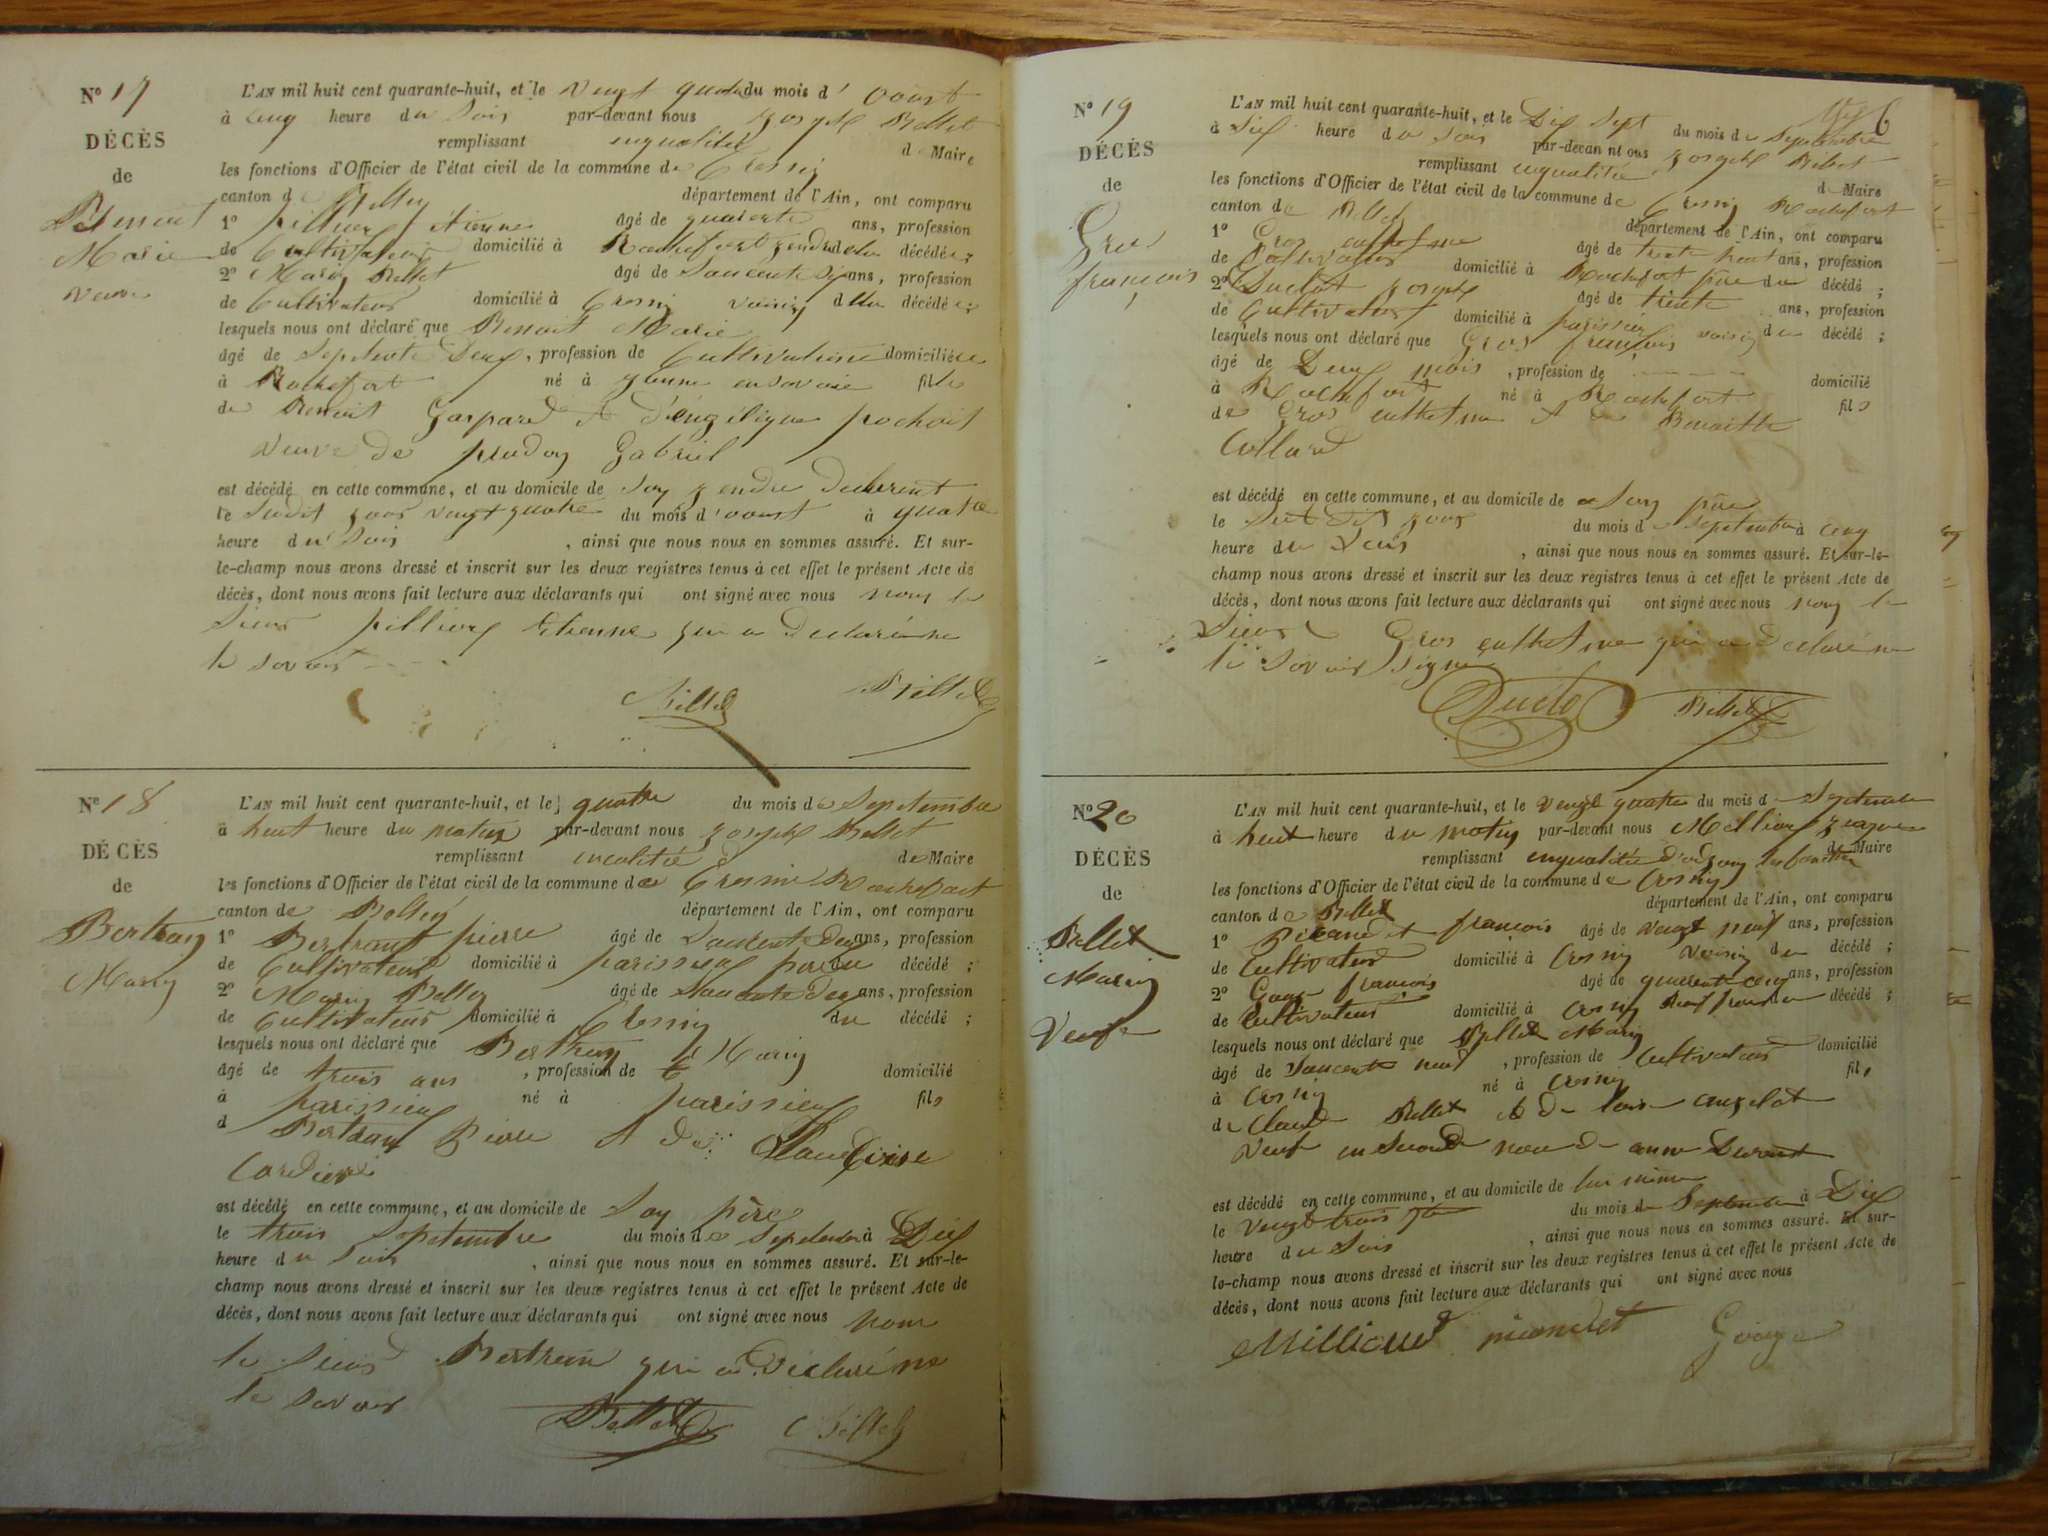 N° 17
DÉCÈS
de
Benoit
Marie
veuve
L'AN mil huit cent quarante-huit, et le vingt quatre du mois d' oout
à cinq heure du Soir par-devant nous Joseph Bellet
remplissant enqualité de Maire
les fonctions d'Officier de l'état civil de la commune de Cressin
canton de Belley département de l'Ain, ont comparu
1° pillion Etienne âgé de quarente ans, profession
de Cultivateur domicilié à Rochefort gendre de la décédée;
2° Marin Bellet âgé de Soucente ans, profession
de Cultivateur domicilié à Cressin voisin de la décédée;
lesquels nous ont déclaré que Benoit Marie
âgé de Septente Deux, profession de Cultivatrice domicilié
à Rochefort né à yenne en savoie fille
de Benoit Gaspard et d'engélique pochoit
veuve de Gabriel
est décédé en cette commune, et au domicile de Son gendre
le Sudit jour vingt quatre du mois d'oout à quatre
heure du Soir, ainsi que nous nous en sommes assuré. Et sur-
le-champ nous avons dressé et inscrit sur les deux registres tenus à cet effet le présent Acte de
décès, dont nous avons fait lecture aux déclarants qui ont signé avec nous non le
Sieur pillion Etienne qui a Declaré ne
le savoir
Bellet Bellet
N° 18
DÉCÈS
de
Bertran
Marin
L'AN mil huit cent quarante-huit, et le quatre du mois de Septembre
à huit heure du matin par-devant nous Joseph Bellet
remplissant de Maire
les fonctions d'Officier de l'état civil de la commune de Rochefort
canton de Belley département de l'Ain, ont comparu
1° Bertrant pierre âgé de ans, profession
de Cultivateur domicilié à parissieu père du décédé;
2° Marin Belley âgé de ans, profession
de Cultivateur domicilié à Cressin du décédé;
lesquels nous ont déclaré que Bertran Marin
âgé de trois ans, profession de domicilié
à parissieu né à parissieu fils
d Bertran Pierre et de Claudine
Cordier
est décédé en cette commune, et au domicile de Son père
le trois Septembre du mois de Septembre à Dix
heure du Soir, ainsi que nous nous en sommes assuré. Et sur-le-
champ nous avons dressé et inscrit sur les deux registres tenus à cet effet le présent Acte de
décès, dont nous avons fait lecture aux déclarants qui ont signé avec nous non
le Sieur Bertran qui a Déclaré ne
le savoir
Bellet Bellet
6
N° 19
DÉCÈS
de
Gros
françois
L'AN mil huit cent quarante-huit, et le Dix Sept du mois de Septembre
à Six heure du Soir par-devant nous Joseph Bellet
remplissant enqualité de Maire
les fonctions d'Officier de l'état civil de la commune de Cressin Rochefort
canton de département de l'Ain, ont comparu
1° Gros anthelme âgé de trente huit ans, profession
de Cultivateur domicilié à Rochefort père du décédé;
2° Duclot Joseph âgé de trente ans, profession
de Cultivateur domicilié à parissieu voisin du décédé;
lesquels nous ont déclaré que Gros françois
âgé de Deux mois, profession de domicilié
à Rochefort né à Rochefort fils
de Gros anthelme et de Benoitte
Collard
est décédé en cette commune, et au domicile de Son père
le jour du mois de Septembre à cinq
heure du, ainsi que nous nous en sommes assuré. Et sur-le-
champ nous avons dressé et inscrit sur les deux registres tenus à cet effet le présent Acte de
décès, dont nous avons fait lecture aux déclarants qui ont signé avec nous non le
Sieur Gros anthelme qui a Declaré ne
le Savoir Signer
Duclo Bellet
N° 20
DÉCÈS
de
Bellet
Marin
Veuf
L'AN mil huit cent quarante-huit, et le vingt quatre du mois d Septembre
à huit heure du matin par-devant nous Millioud
remplissant enqualité d'adjoin les fonction de Maire
les fonctions d'Officier de l'état civil de la commune de Cressin
canton de département de l'Ain, ont comparu
1° françois âgé de vingt neuf ans, profession
de Cultivateur domicilié à Cressin voisin du décédé;
2° françois âgé de quarente cinq ans, profession
de Cultivateur domicilié à Cressin décédé;
lesquels nous ont déclaré que Bellet Marin
âgé de Soucente neuf, profession de Cultivateur domicilié
à Cressin né à Cressin fils
de Claude Bellet et de
Veuf en Seconde noce de anne Durent
est décédé en cette commune, et au domicile de lui même
le vingt trois 7bre du mois de Septembre à Dix
heure du Soir, ainsi que nous nous en sommes assuré. Et sur-
le-champ nous avons dressé et inscrit sur les deux registres tenus à cet effet le présent Acte de
décès, dont nous avons fait lecture aux déclarants qui ont signé avec nous
Millioud picondet